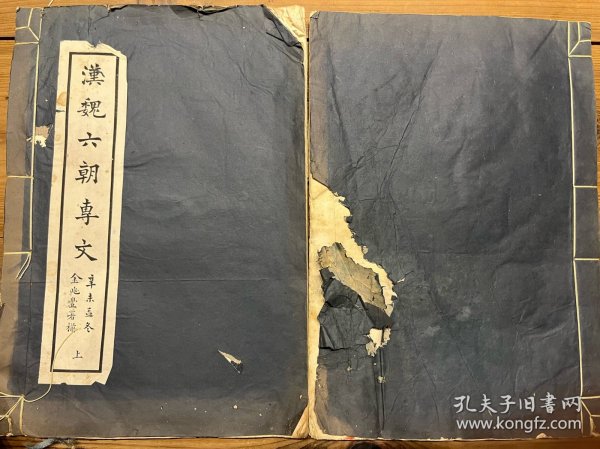 漢魏六朝專文
辛未孟冬
金兆蕃署檢
上
孔夫子旧书网
www.kongfz.com